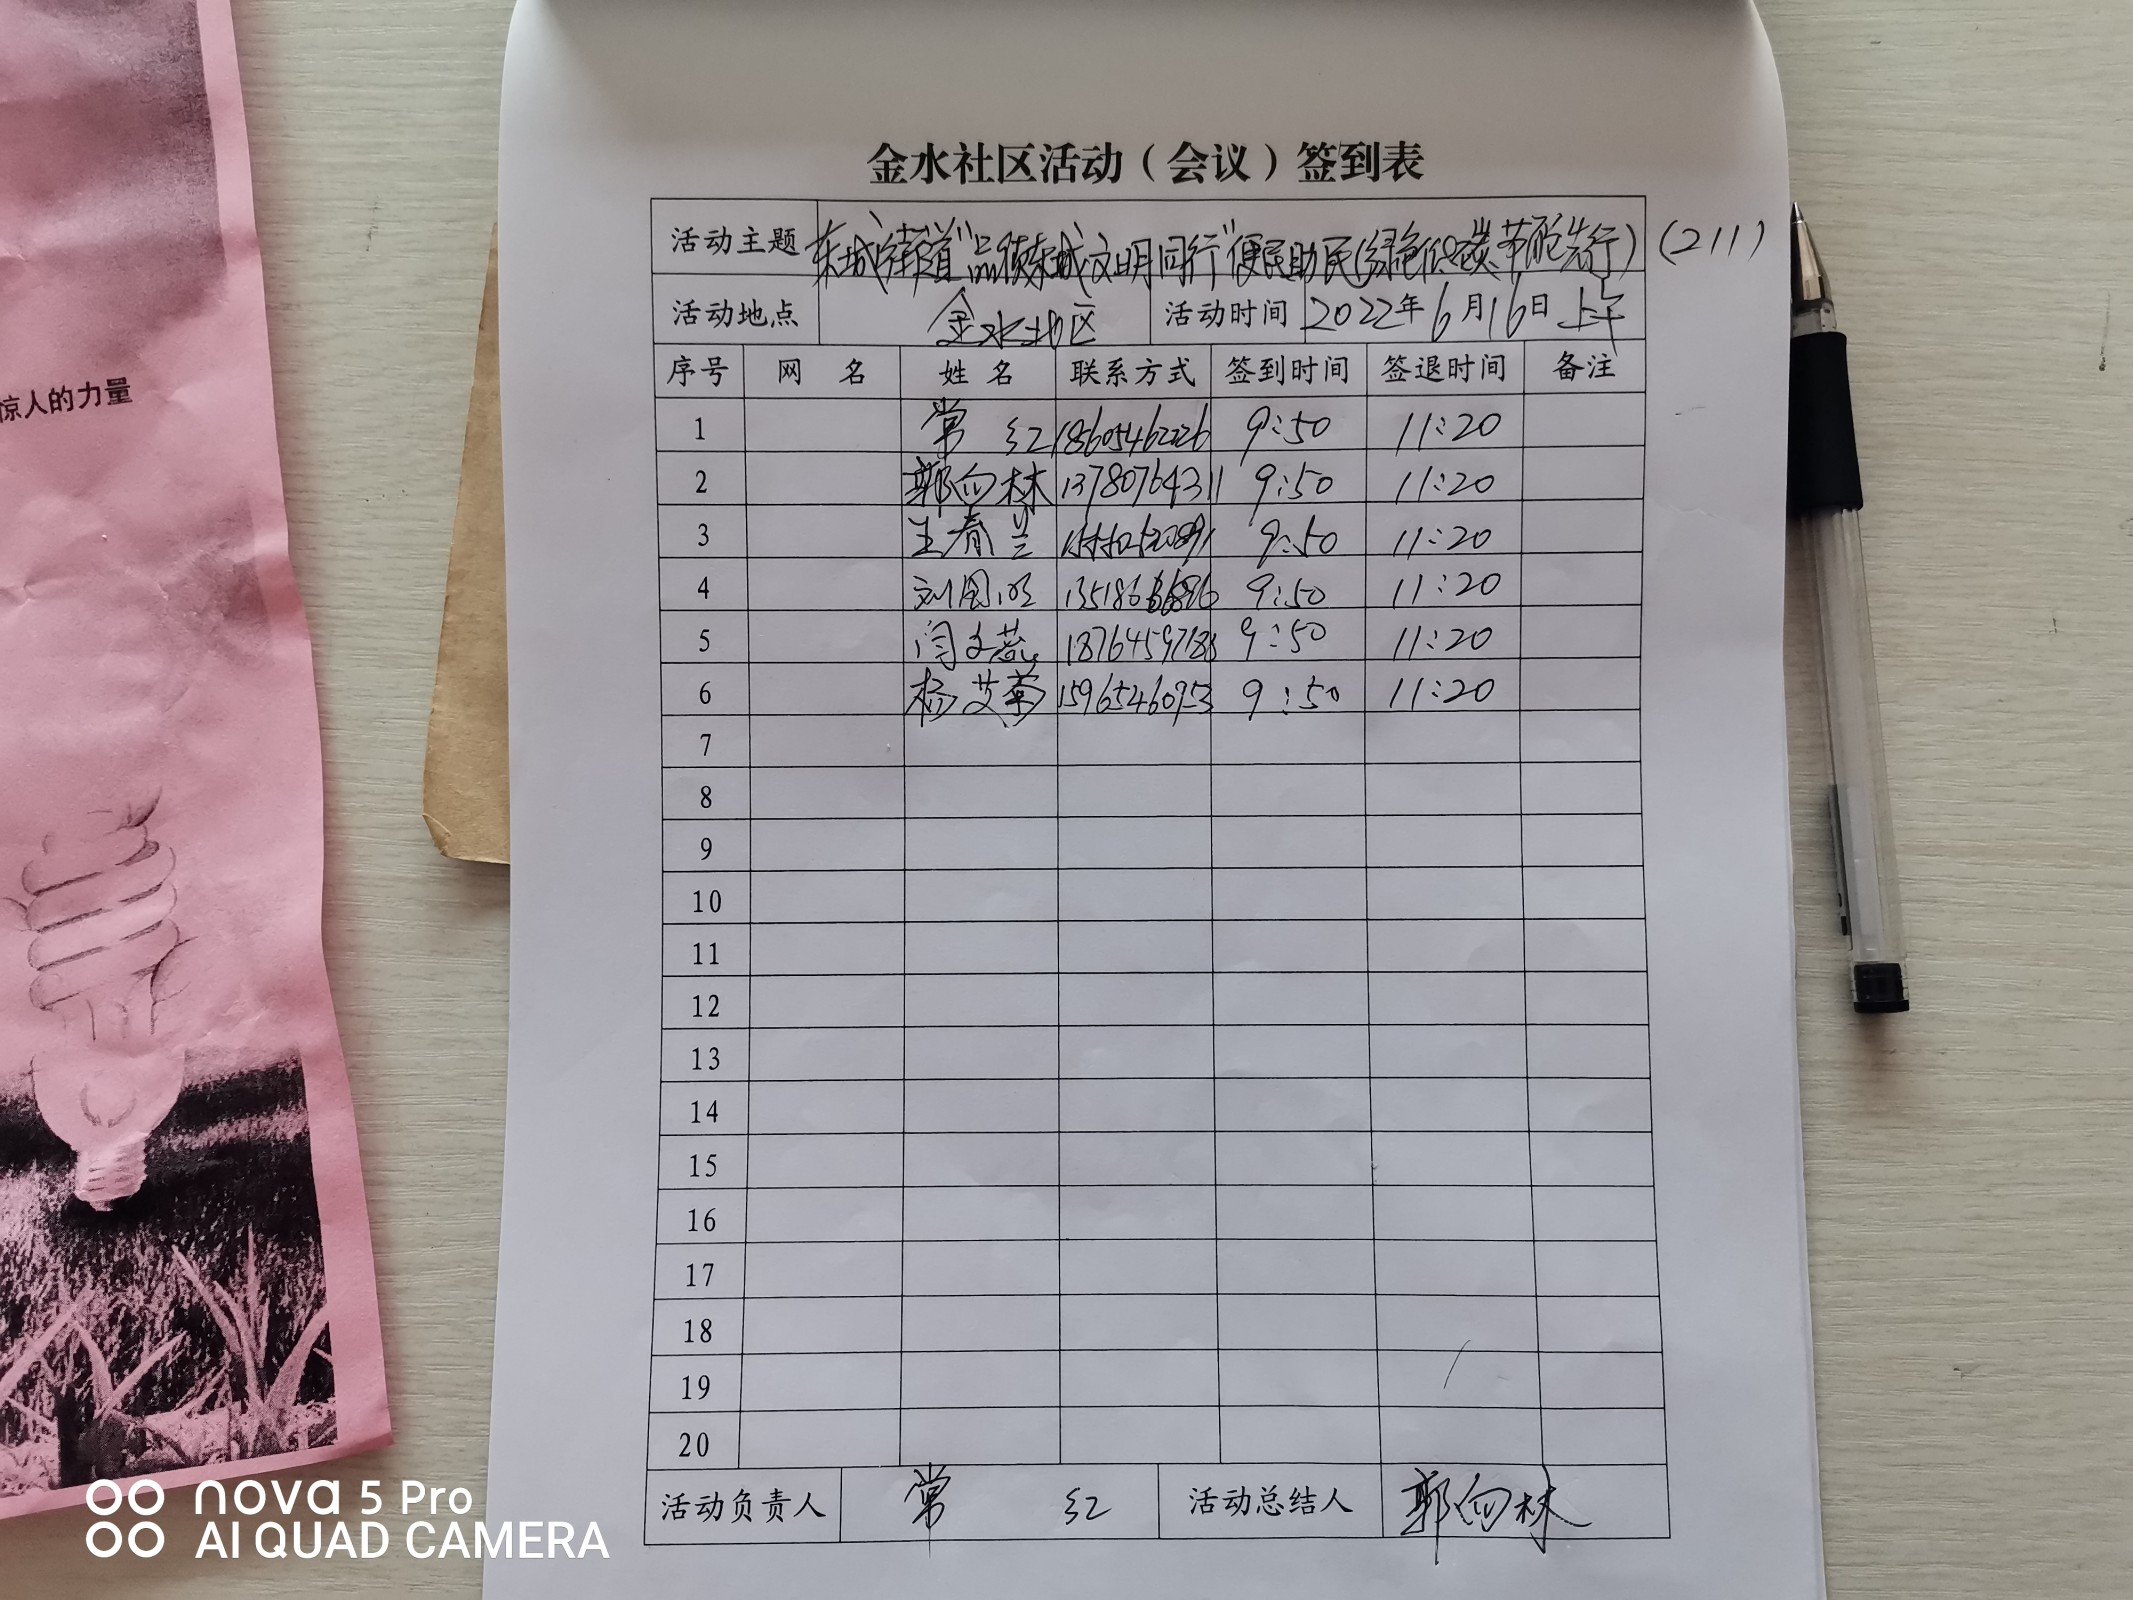 金水社区活动（会议）签到表
活动主题 东城街道"品质东城文明同行"便民助民(绿色低碳节能先行)(211)
活动地点 金水社区 活动时间 2022年6月16日上午
序号 网 名 姓 名 联系方式 签到时间 签退时间 备注
1 常 红 18605462226 9:50 11:20
2 郭向林 13780764311 9:50 11:20
3 王春兰 9:50 11:20
4 9:50 11:20
5 闫文蕊 9:50 11:20
6 杨艾菊 15965460953 9:50 11:20
7
8
9
10
11
12
13
14
15
16
17
18
19
20
活动负责人 常 红 活动总结人 郭向林
惊人的力量
nova 5 Pro
AI QUAD CAMERA